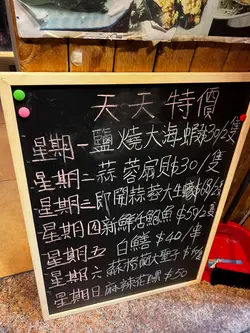 天天特價
星期一鹽燒大海蝦$30/2隻
星期二蒜蓉扇貝$30/隻
星期三即開蒜蓉大生蠔$68/2隻
星期四新鮮活鮑魚$59/2隻
星期五 白鱔 $40/串
星期六 蒜蓉 大聖子
星期日 麻辣花螺 $50